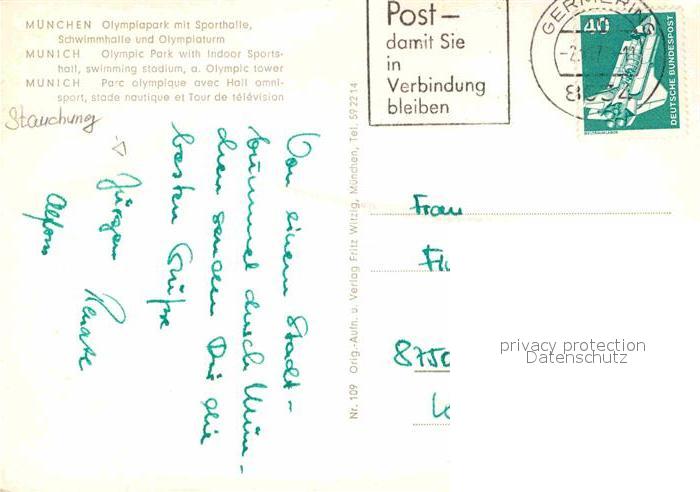 MÜNCHEN Olympiapark mit Sporthalle,
Schwimmhalle und Olympiaturm
MUNICH Olympic Park with Indoor Sports-
hall, swimming stadium, a. Olympic tower
MUNICH Parc olympique avec Hall omni-
sport, stade nautique et Tour de télévision
Stauchung
Von einem Stadt-
bummel durch Mün-
chen senden Dir die
besten Grüße
Jürgen Renate
Alfons
Nr. 109 Orig.-Aufn. u. Verlag Fritz Witzig, München, Tel. 59 22 14
Post-
damit Sie
in
Verbindung
bleiben
GERMERING
8034
40
DEUTSCHE BUNDESPOST
WELTRAUMLABOR
Frau
8750
privacy protection
Datenschutz